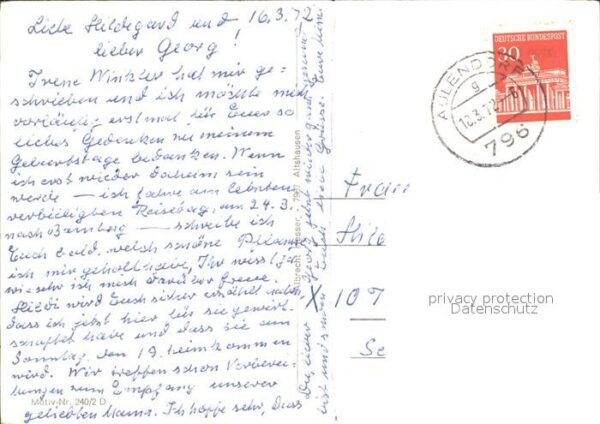 Liebe Hildegard und 16.3.72
lieber Georg!
Irene Winkler hat mir ge-
schrieben und ich möchte mich
vorläufig erst mal für Euer so
liebes Gedenken zu meinem
Geburtstage bedanken. Wenn
ich erst wieder daheim sein
werde — ich fahre am letzten
verbilligten Reisetag, am 24.3.
nach Bamberg — schreibe ich
Euch bald, welch schöne Pflanze
ich mir geholt habe, Ihr wisst ja
wie sehr ich mich darüber freue.
Hildi wird Euch sicher erzählt haben,
dass ich jetzt hier bei sie gewirt-
schaftet habe und dass sie am
Sonntag, den 19. heimkommen
wird. Wir treffen schon Vorberei-
tungen zum Empfang unserer
geliebten Mami. Ich hoffe sehr, dass
Du, lieber Georg, jetzt wieder ganz gesund
bist und
Euch
Grüsse Eure Mimi
Motiv-Nr. 240/2 D
Albrecht 7967 Altshausen
DEUTSCHE BUNDESPOST
30
AULENDORF
g
16.3.72
796
Frau
Hild
X 107
Se
privacy protection
Datenschutz